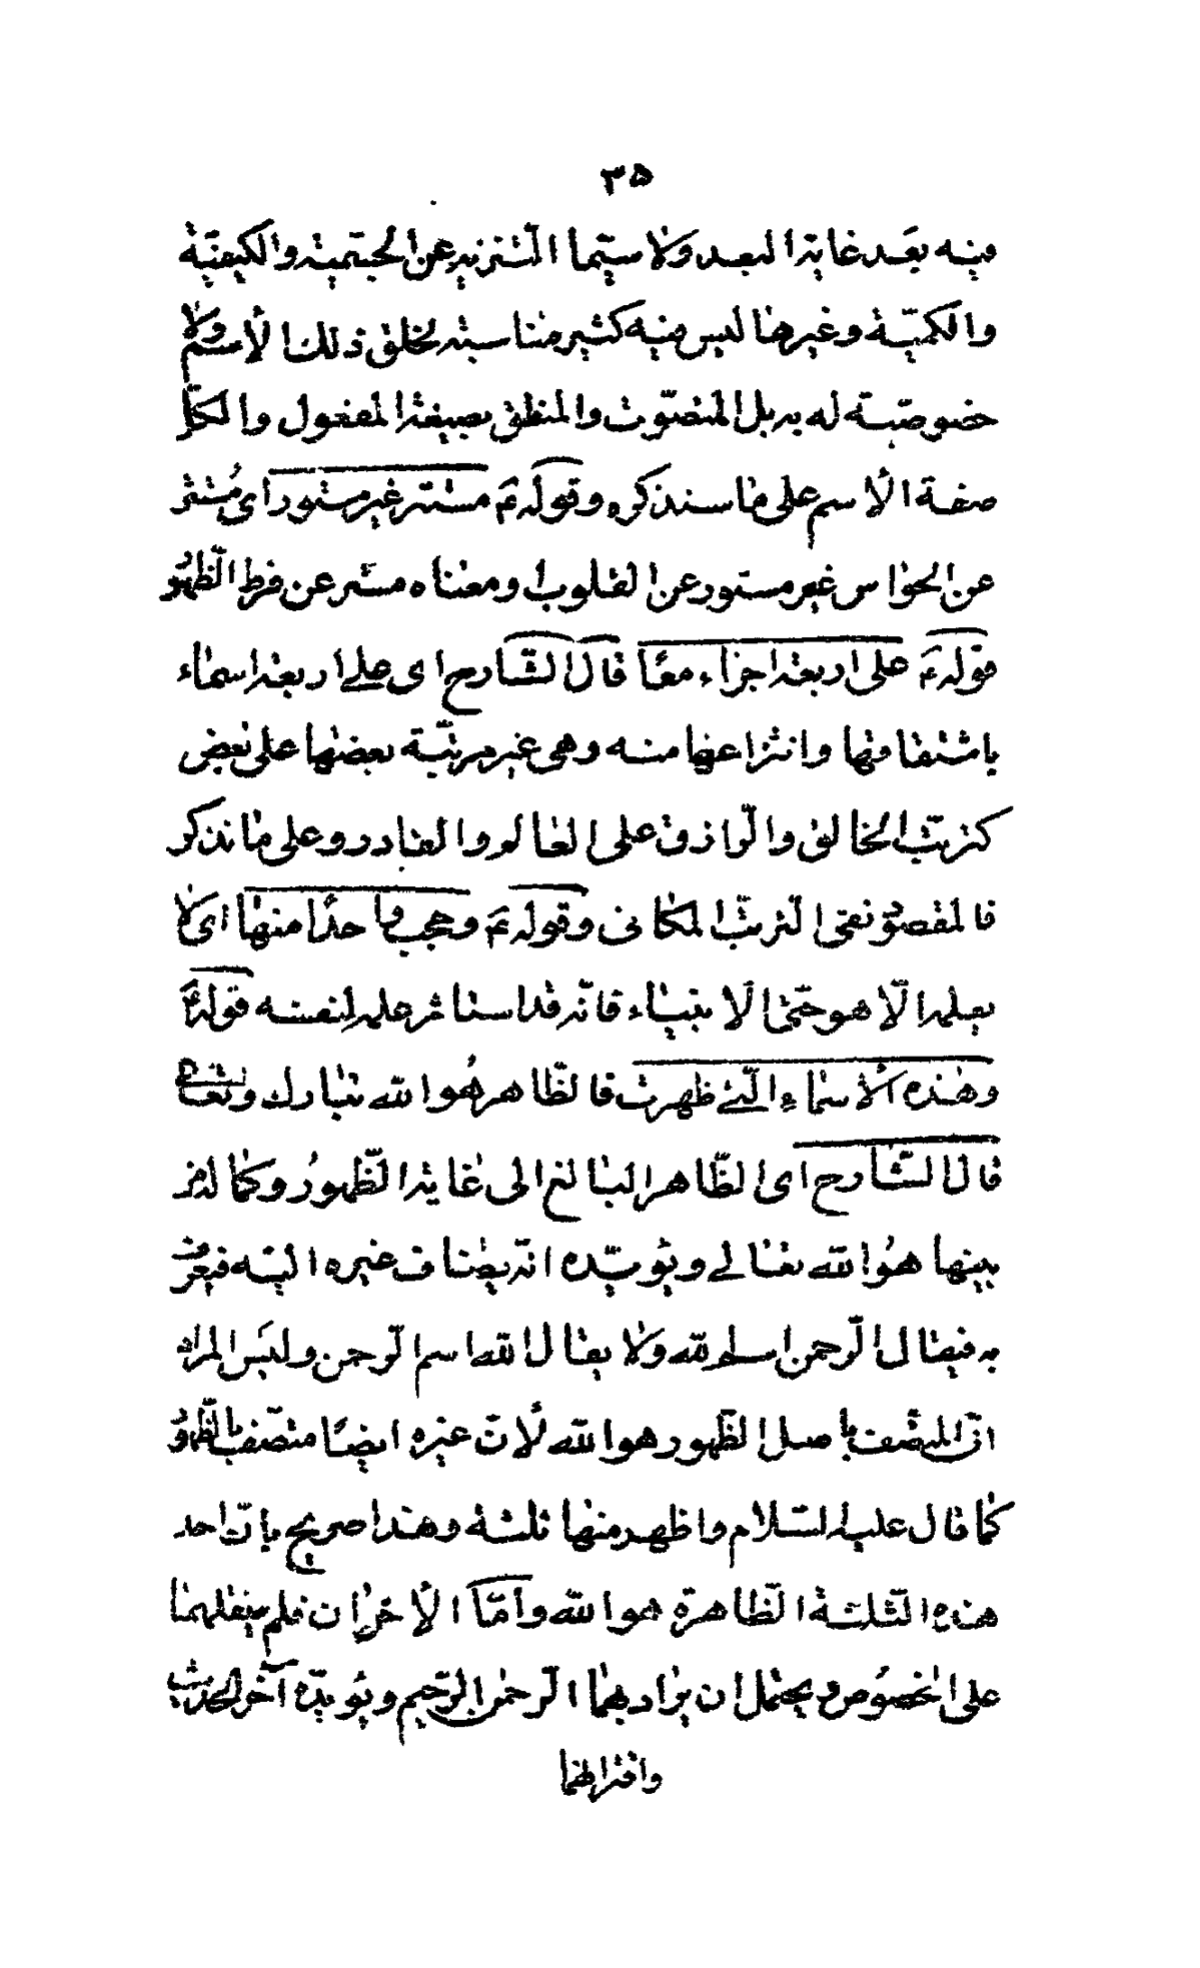 ٣۵
فيه بعد غاية البعد ولا سيّما التّنزيه عن الجسميّة والكيفيّة
والكميّة وغيرها ليس فيه كثير مناسبة لخلق ذلك الأسم ولا
خصوصيّة له به بل المتصوّت والمنطق بصيغة المفعول والكلّ
صفة الأسم على ما سنذكره وقوله ع مستتر غير مستور اى مستتر
عن الحواس غير مستور عن القلوب او معناه مستتر عن فرط الظّهور
قوله ع على اربعة اجزاء معًا قال الشّارح اى على اربعة اسماء
باشتقاقها وانتزاعها منه وهى غير مرتّبة بعضها على بعض
كترتّب الخالق والرّازق على العالم والقادر وعلى ما نذكر
فالمقصود نفى التّرتّب المكانى وقوله ع وحجب واحدًا منها اى لا
يعلمه الّا هو حتّى الأنبياء فانّه قد استاثر علمه لنفسه قوله ع
وهذه الأسماء الّتى ظهرت فالظّاهر هُو الله تبارك وتعالى
قال الشّارح اى الظّاهر البالغ الى غاية الظّهور وكماله من
بينها هُو الله تعالى ويؤيّده انّه يضاف غيره اليه فيعرف
به فيقال الرّحمن اسم لله ولا يقال الله اسم الرّحمن وليس المراد
انّ المتّصف باصل الظّهور هو الله لأنّ غيره ايضًا متّصف بالظّهور
كما قال عليه السّلام واظهر منها ثلثة وهذا صريح بانّ احد
هذه الثّلثة الظّاهرة هو الله وامّا الأخران فلم يتعلهما
على الخصوص ويحتمل ان يراد بهما الرّحمن الرّحيم ويؤيّده آخر الحديث
واقترانهما